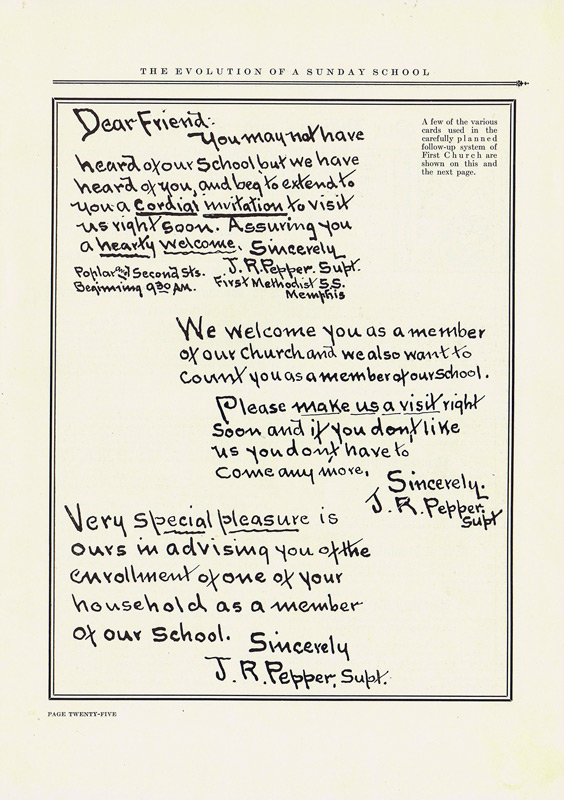 THE EVOLUTION OF A SUNDAY SCHOOL
Dear Friend:
You may not have
heard of our School but we have
heard of you, and beg to extend to
you a Cordial invitation to visit
us right soon. Assuring you
a hearty welcome. Sincerely
J.R. Pepper. Supt.
First Methodist S.S.
Memphis
Poplar and Second Sts.
Beginning 9:30 AM.
A few of the various
cards used in the
carefully planned
follow-up system of
First Church are
shown on this and
the next page.
We welcome you as a member
of our Church and we also want to
count you as a member of our School.
Please make us a visit right
soon and if you don't like
us you don't have to
come any more.
Sincerely.
J.R. Pepper.
Supt
Very special pleasure is
ours in advising you of the
enrollment of one of your
household as a member
of our School.
Sincerely
J.R. Pepper, Supt.
PAGE TWENTY-FIVE